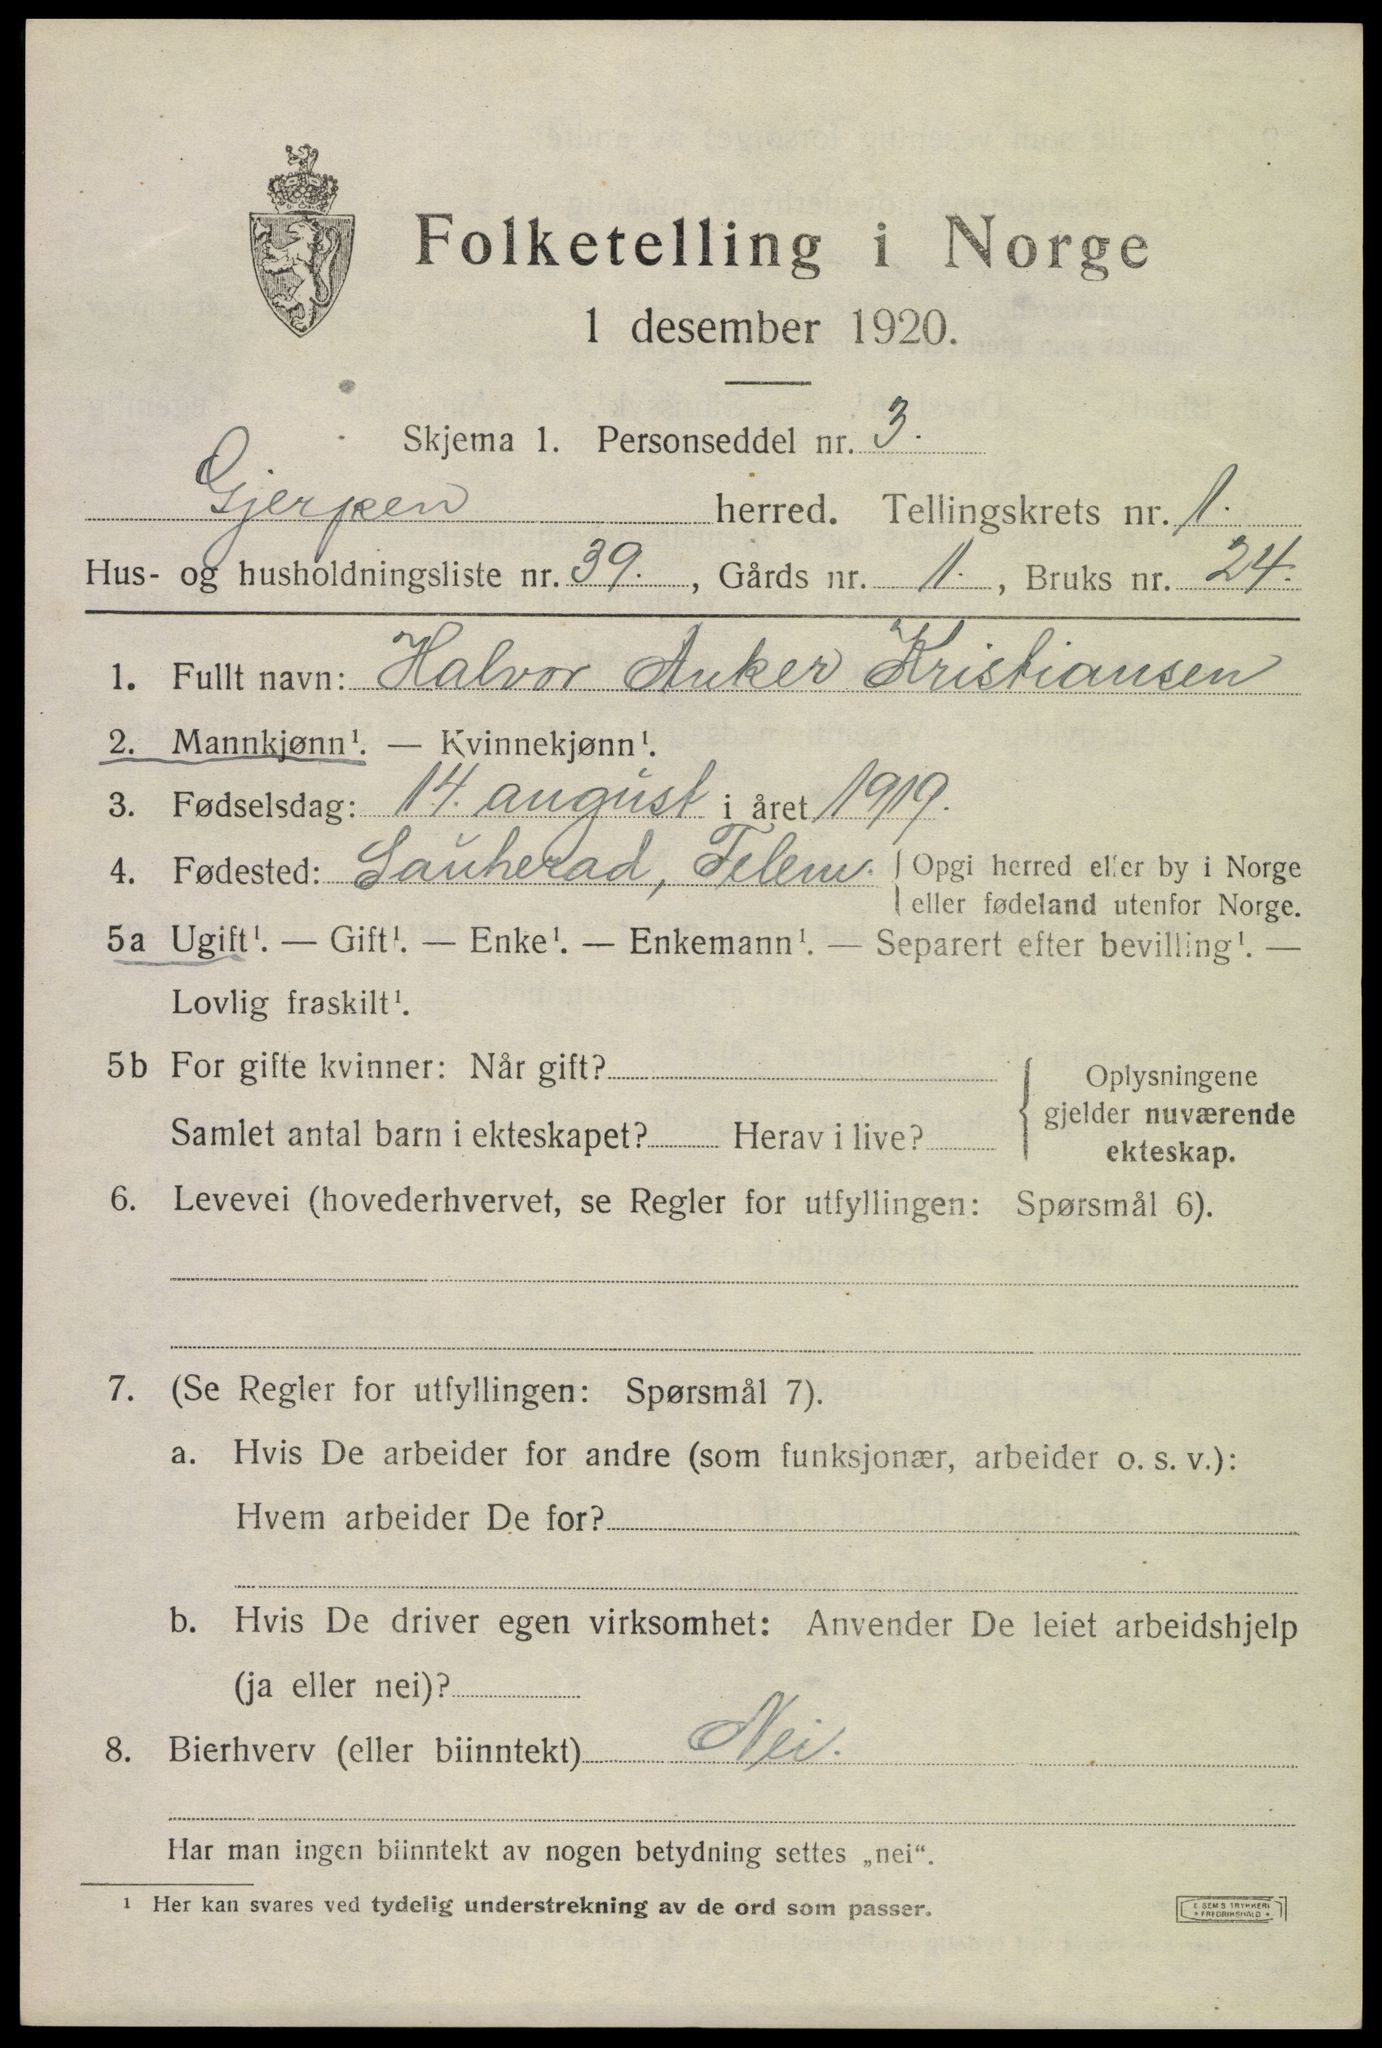 Folketelling i Norge
1 desember 1920.
Skjema 1. Personseddel nr. 3.
Gjerpen herred. Tellingskrets nr. 1.
Hus- og husholdningsliste nr. 39., Gårds nr. 1., Bruks nr. 24.
1. Fullt navn: Halvor Anker Kristiansen
2. Mannkjønn¹. — Kvinnekjønn¹.
3. Fødselsdag: 14. august i året 1919.
4. Fødested: Sauherad, Telem. Opgi herred eller by i Norge
eller fødeland utenfor Norge.
5a Ugift¹. — Gift¹. — Enke¹. — Enkemann¹. — Separert efter bevilling¹. —
Lovlig fraskilt¹.
5b For gifte kvinner: Når gift?
Samlet antal barn i ekteskapet? Herav i live?
Oplysningene
gjelder nuværende
ekteskap.
6. Levevei (hovederhvervet, se Regler for utfyllingen: Spørsmål 6).
7. (Se Regler for utfyllingen: Spørsmål 7).
a. Hvis De arbeider for andre (som funksjonær, arbeider o. s. v.):
Hvem arbeider De for?
b. Hvis De driver egen virksomhet: Anvender De leiet arbeidshjelp
(ja eller nei)?
8. Bierhverv (eller biinntekt) Nei.
Har man ingen biinntekt av nogen betydning settes „nei“.
¹ Her kan svares ved tydelig understrekning av de ord som passer.
E. SEMS TRYKKERI
FREDRIKSHALD